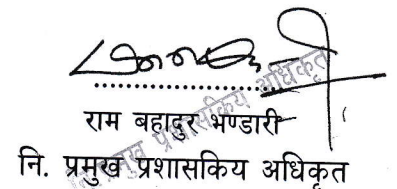 राम बहादुर भण्डारी
नि. प्रमुख प्रशासकिय अधिकृत
प्रमुख प्रशासकिय अधिकृत